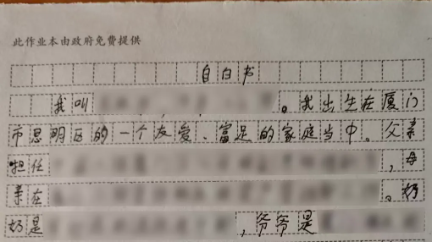 此作业本由政府免费提供
自白书
我叫 。我出生在厦门
市思明区的一个友爱、富足的家庭当中。父亲
担任 ,母
亲在 。奶
奶是 ,爷爷是